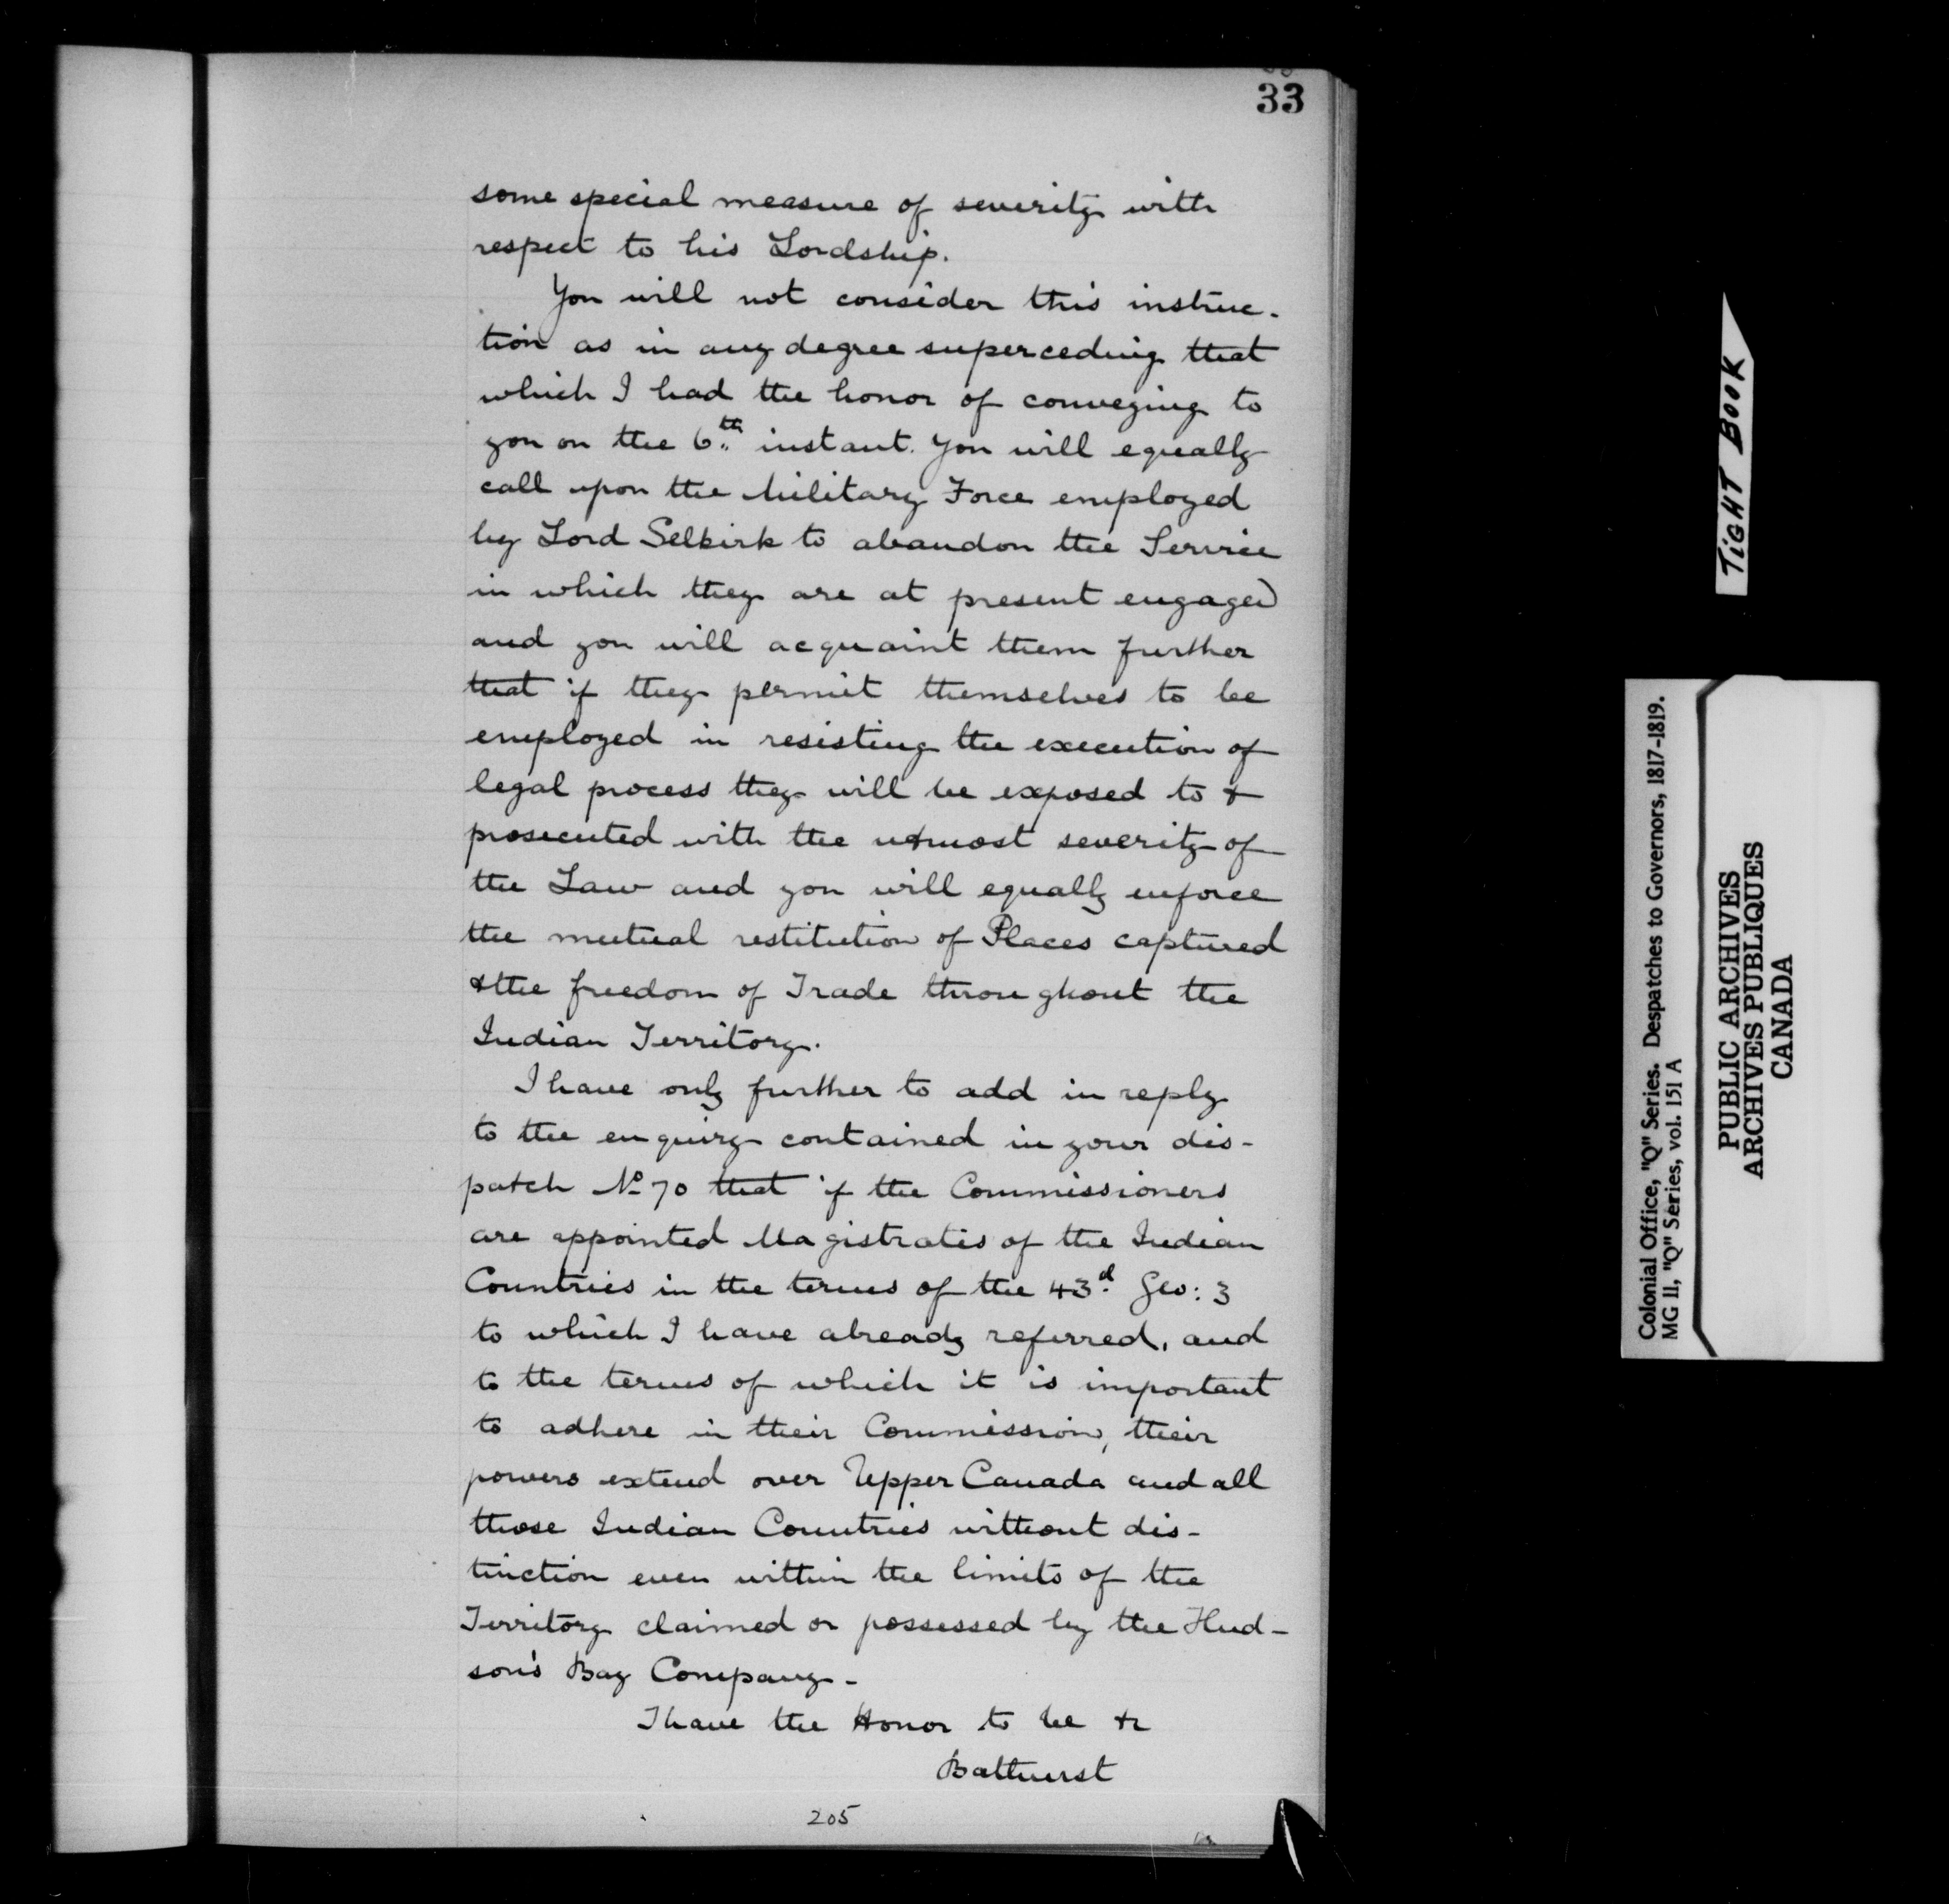 33
some special measure of severity with
respect to his Lordship.
You will not consider this instruc-
tion as in any degree superceding that
which I had the honor of conveying to
you on the 6th instant. You will equally
call upon the Military Force employed
by Lord Selkirk to abandon the Service
in which they are at present engaged
and you will acquaint them further
that if they permit themselves to be
employed in resisting the execution of
legal process they will be exposed to &
prosecuted with the utmost severity of
the Law and you will equally enforce
the mutual restitution of Places captured
& the freedom of Trade throughout the
Indian Territory.
I have only further to add in reply
to the enquiry contained in your dis-
patch No 70 that if the Commissioners
are appointed Magistrates of the Indian
Countries in the terms of the 43d Geo: 3
to which I have already referred, and
to the terms of which it is important
to adhere in their Commission, their
powers extend over Upper Canada and all
those Indian Countries without dis-
tinction even within the limits of the
Territory claimed or possessed by the Hud-
son's Bay Company -
I have the Honor to be &c
Bathurst
205
TIGHT BOOK
Colonial Office, "Q" Series. Despatches to Governors, 1817-1819.
MG 11, "Q" Series, vol. 151 A
PUBLIC ARCHIVES
ARCHIVES PUBLIQUES
CANADA